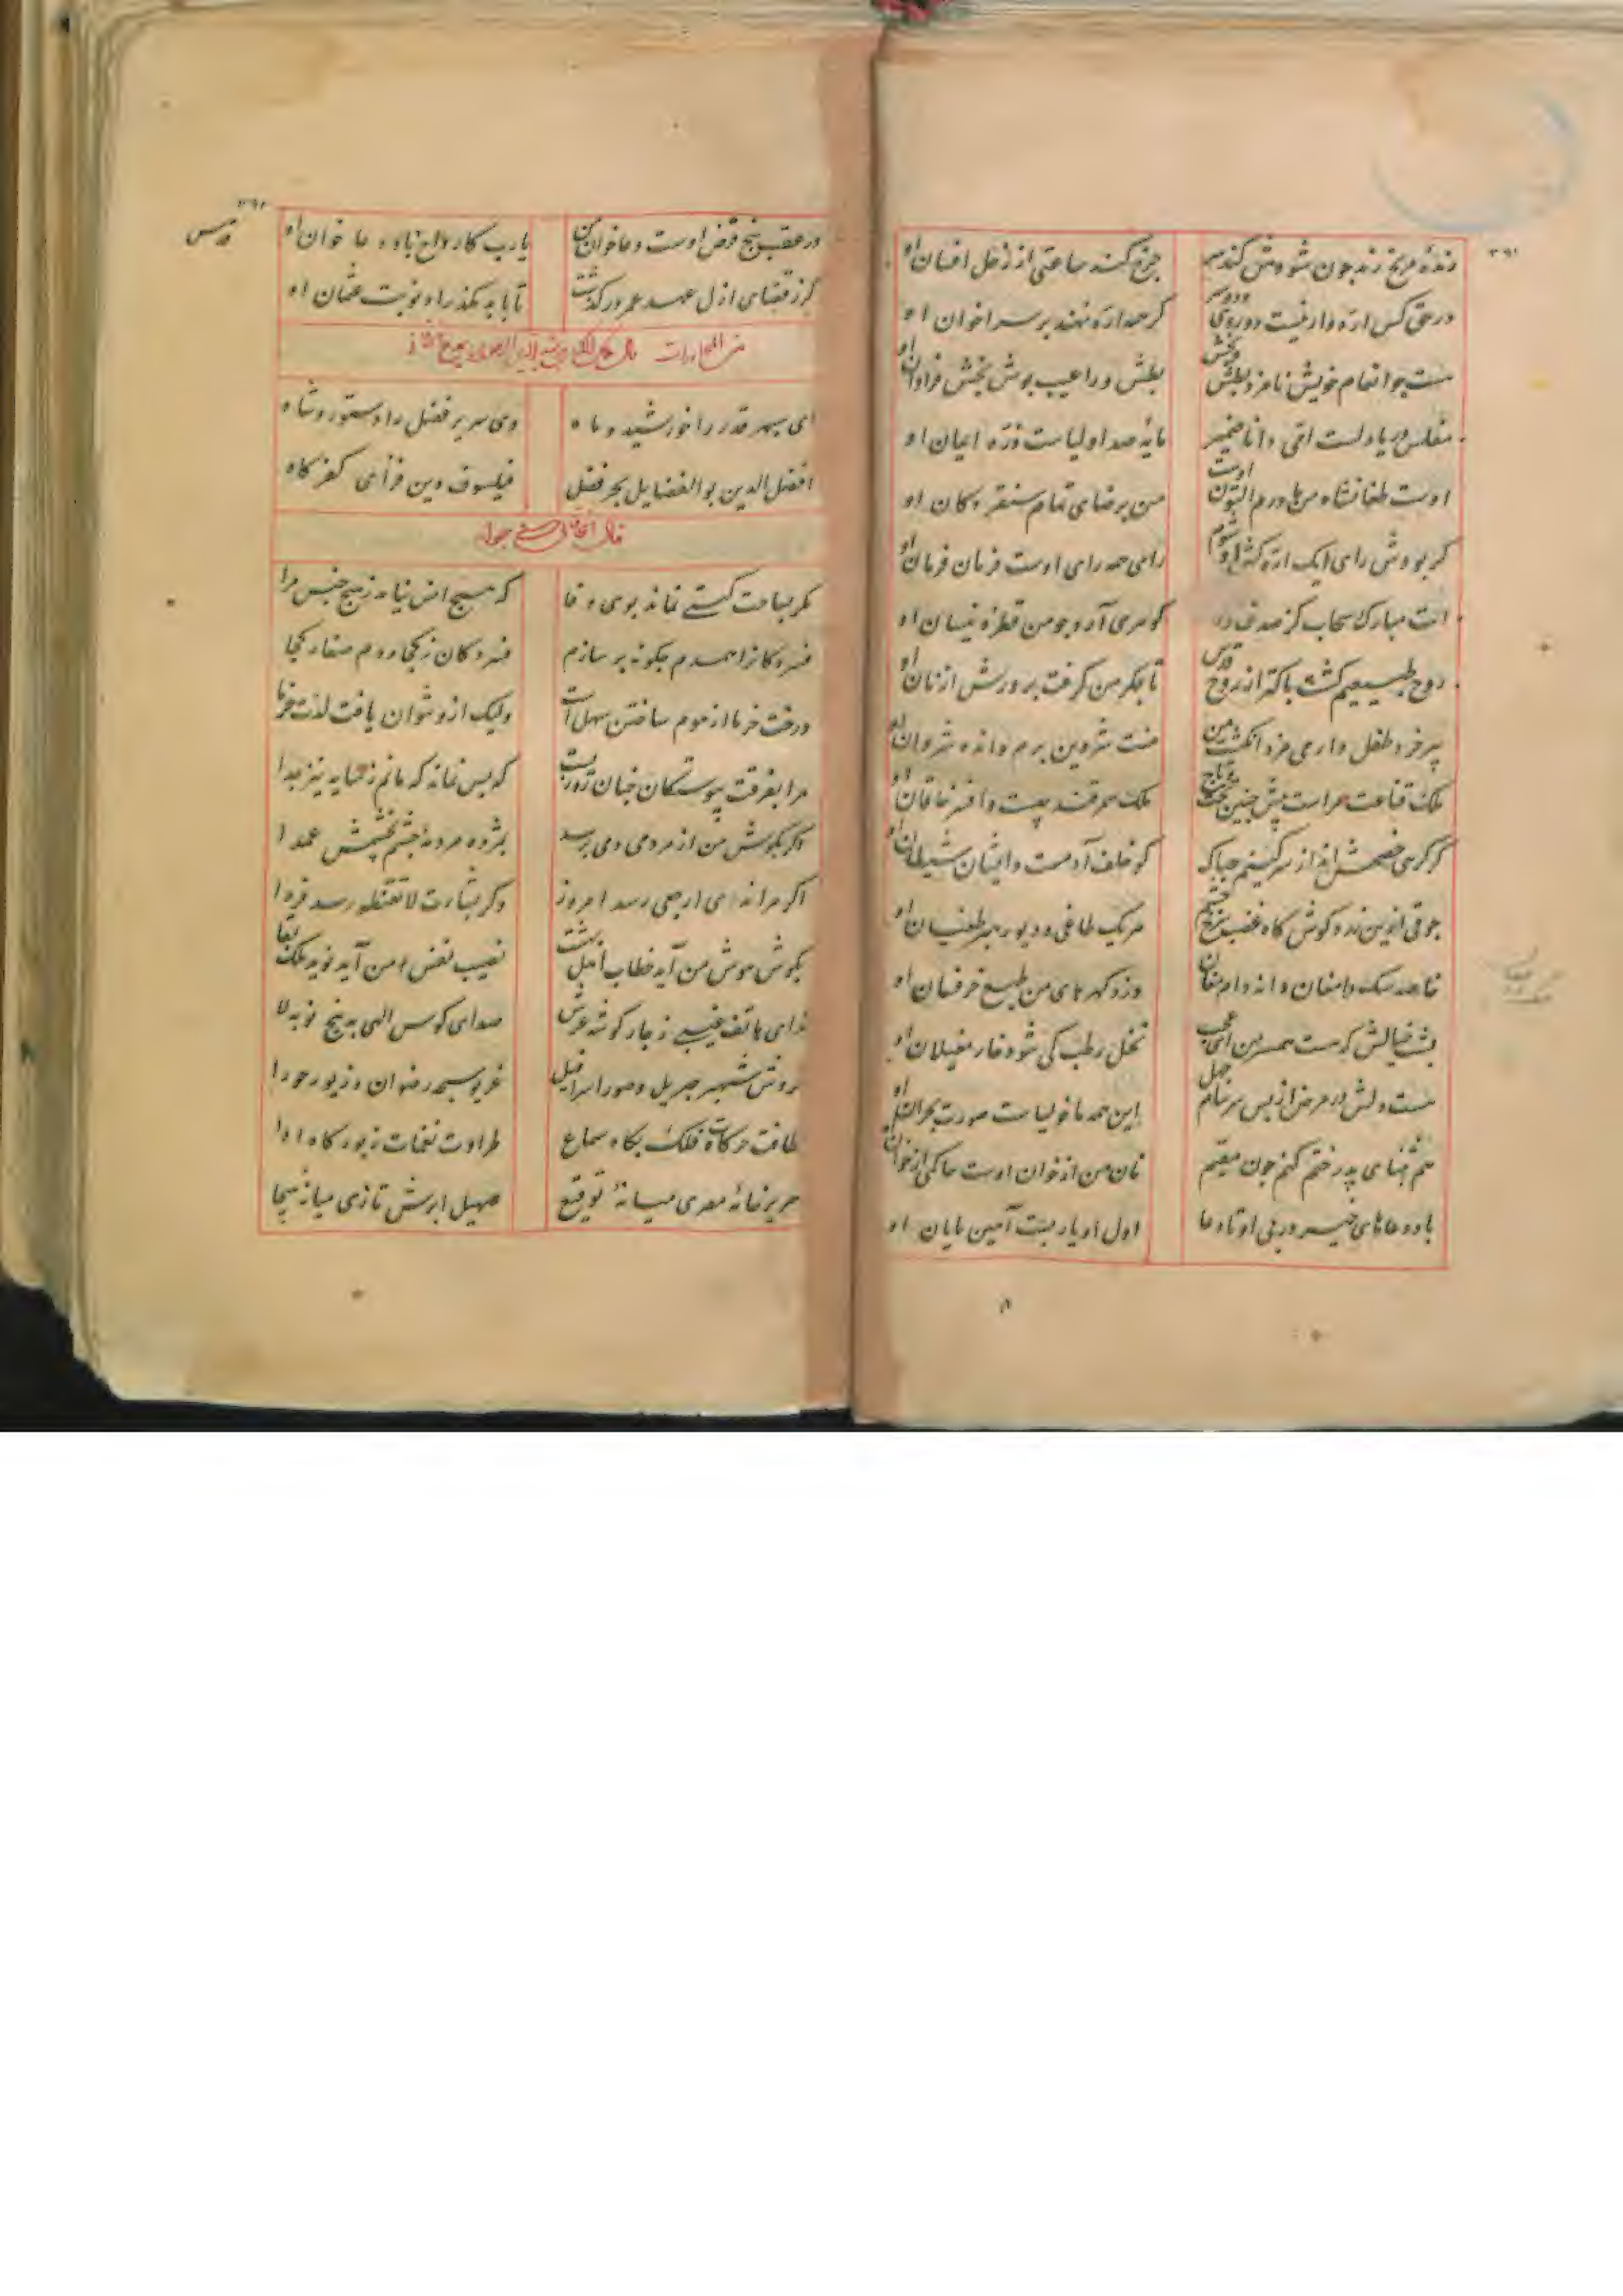 رندهٔ مریخ رند چون شودش کندسر
چرخ کند ساعتی از زحل افسان او
در حق کس اره وار نیست دوروی
گر همه اره نهند بر سر اخوان او
هست چو انعام خویش نامزد بطش
بطش ورا عیب پوش بخشش فراوان او
مفلس دریا دلست امی دانا ضمیر
مایهٔ صد اولیاست ذره ایمان او
اوست طغانشاه من مادرم التون اوست
من برضای تمام سنقر دکان او
گر بودش رای آنک
رای همه رای اوست فرمان فرمان او
اینت مبارک سحاب کز صدف
گوهری آرد چو من قطره نیسان او
روح طبیعیم گشت پاکتر از روح قدس
تا جگر من گرفت پرورش از نان او
پیر خرد طفل وار می مزد انگشت من
منت شروین برم وانده شروان او
ملک قناعت مراست پیش چنین تخت و تاج
ملک سمرقند چیست وافسر خاقان او
گر گری خصمش انداز سر کینم چه باک
کو خلف آدمست وایشان شیطان او
جوقی ازین زرد گوش گاه غضب سرخ چشم
هر یک طاغی و دیو رهبر طغیان او
خاصه سگ دامغان دانه دام مغان
دزد گهرهای من طبع خرفسان او
هست خیالش که هست همسر من ای عجب
نخل رطب کی شود خار مغیلان او
هست دلش در مرض از پس سرسام جهل
این همه ماخولیاست صورت بحران او
هم بثنای پدر ختم کنم چون مقیم
نان من از خوان اوست
باد دعاهای خیر در پی او تا دعا
اول او یا ربست آمین پایان او
۳۶۱
۳۶۲
در عقب پنج فرض اوست دعا خوان من
یا رب کارواح باد دعا خوان او
گر ز قضای ازل عهد عمر درگذشت
تا بابد مگذراد نوبت عثمان او
ای سپهر قدر را خورشید و ماه
وی سریر فضل را دستور و شاه
افضل الدین بو الفضایل بحر فضل
فیلسوف دین فزای کفر کاه
مگر بساحت گیتی نماند بوی وفا
که هیچ انس نیامد ز هیچ جنس مرا
فسردگانرا همدم چگونه بر سازم
فسردگان ز کجا و دم صفا ز کجا
درخت خرما از موم ساختن سهل است
ولیک ازو نتوان یافت لذت خرما
مرا بفرقت پیوستگان چنان روزیست
که بس نماند که مانم ز سایه نیز جدا
اگر بگوش من از مردمی دمی برسد
بمژده مردمه چشم بخشمش عمدا
اگر مرا ندای ارجعی رسد امروز
وگر بشارت لاتقنطو رسد فردا
بگوش هوش من آید خطاب اهل بهشت
نصیب نفس من آید نوید ملک بقا
ندای هاتف غیبی ز چار گوشه عرش
صدای کوس الهی به پنج نوبه لا
خروش شهپر جبریل و صور اسرافیل
غریو سبحه رضوان و زیور حورا
لطافت حرکات فلک بگاه سماع
طراوت نغمات زبور گاه ادا
صریر خامهٔ مصری میانهٔ توقیع
صهیل ابرش تازی میانه هیجا